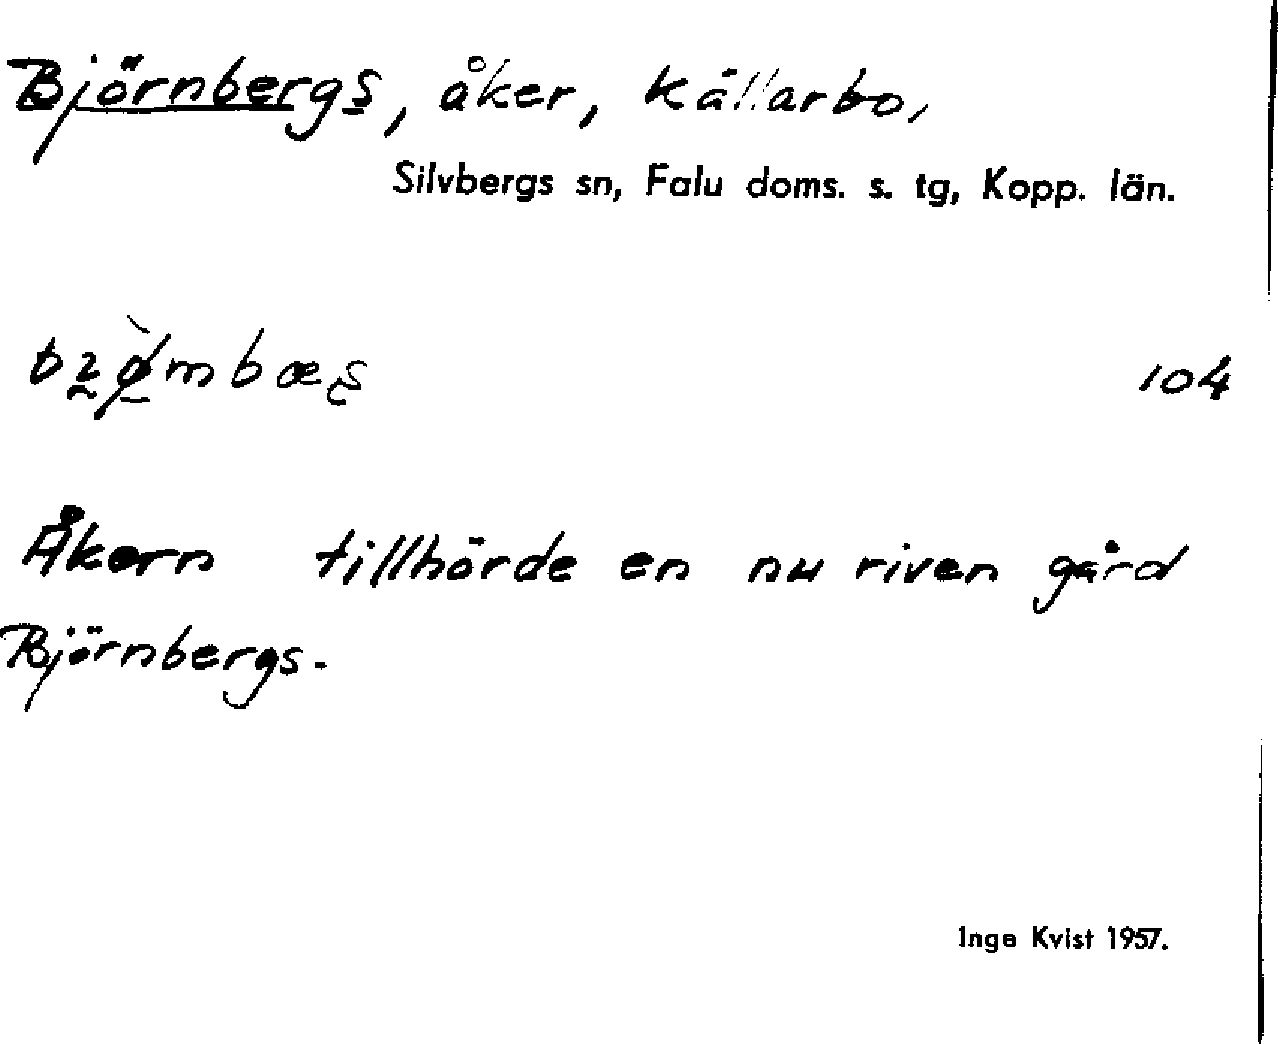 Björnbergs, åker, Källarbo,
Silvbergs sn, Falu doms. s. tg, Kopp. län.
104
Åkern tillhörde en nu riven gård
Björnbergs.
Inga Kvist 1957.